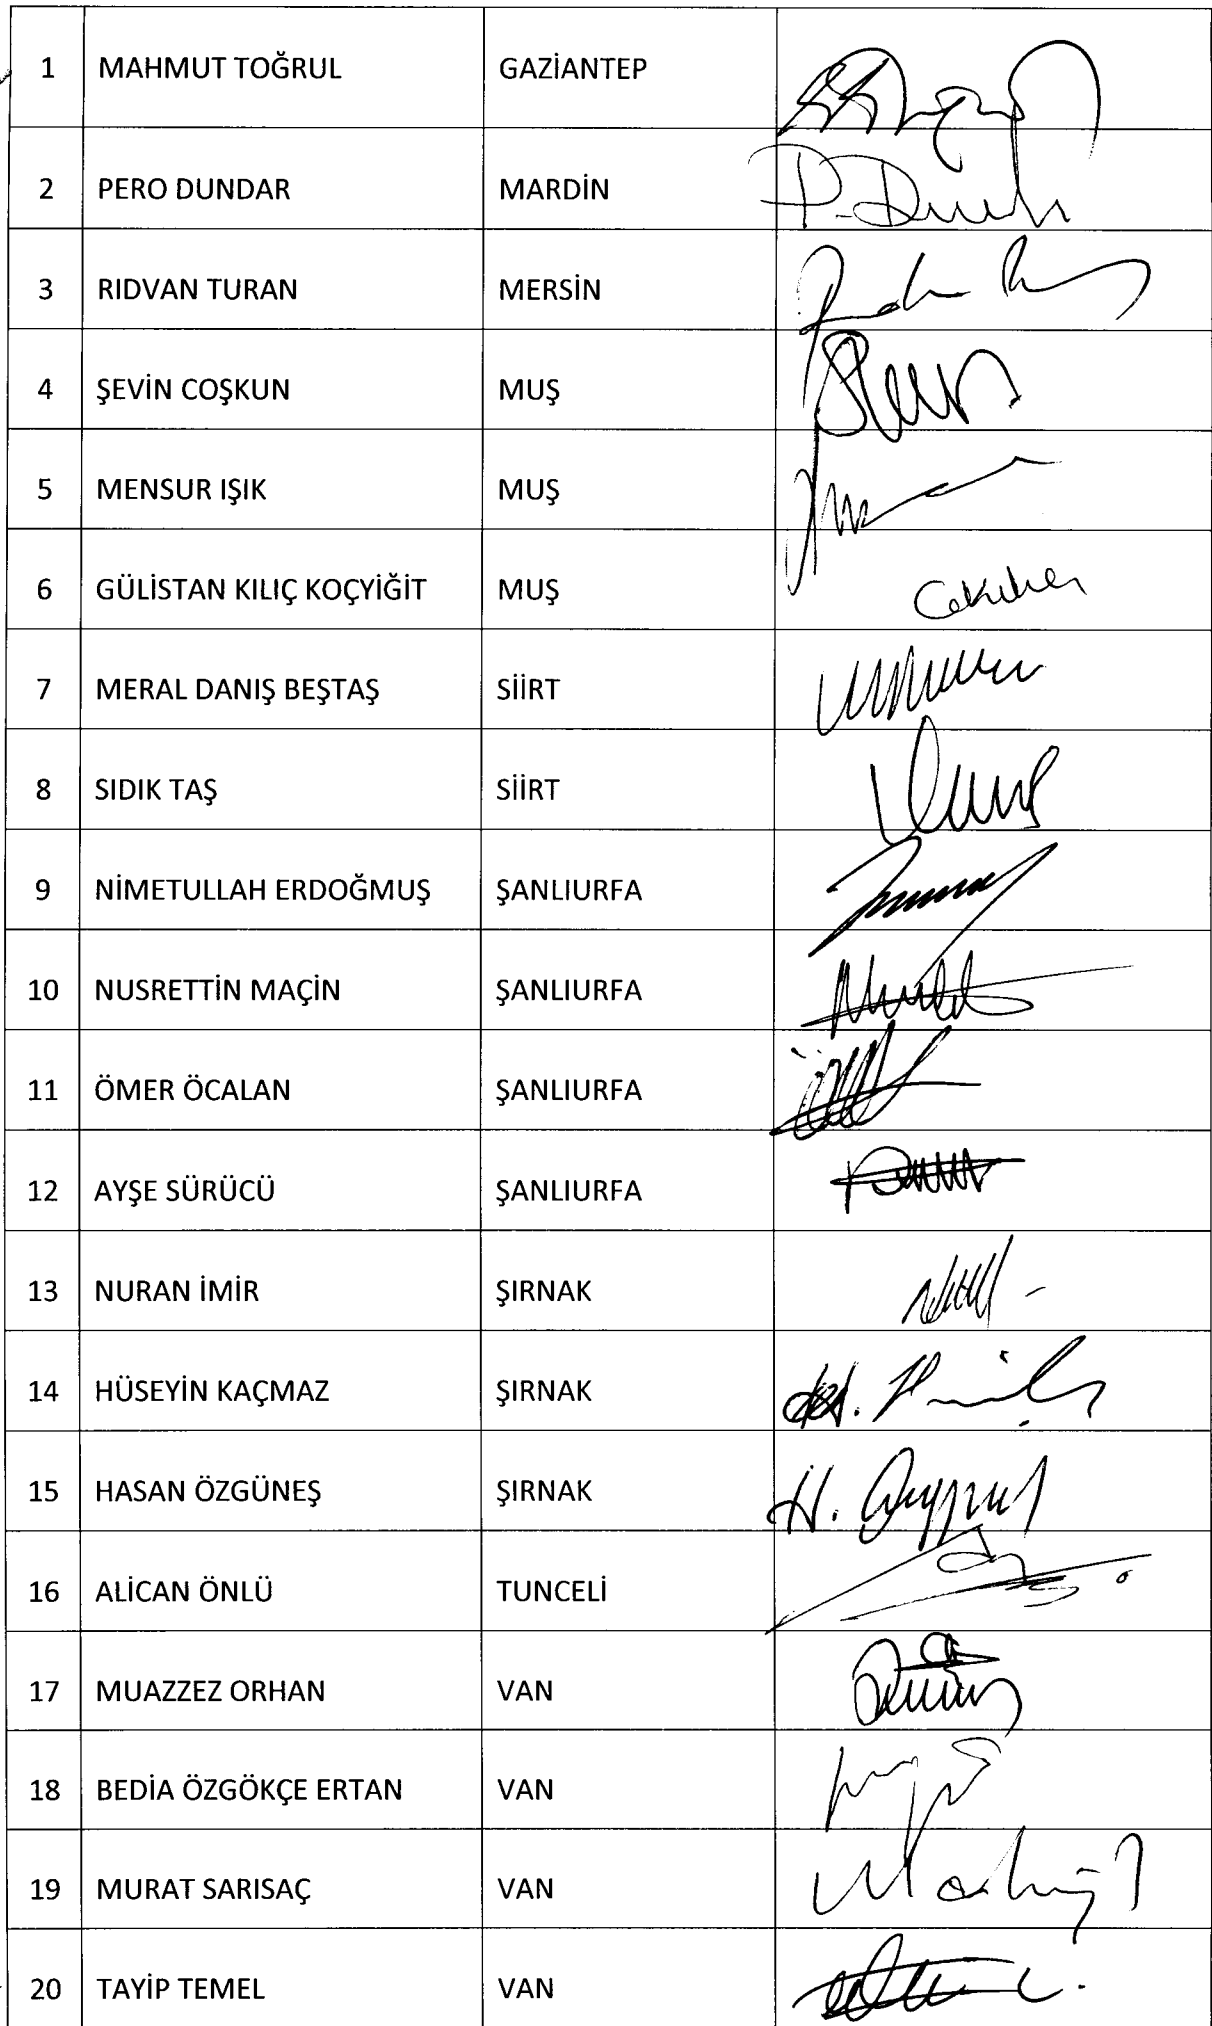 1 MAHMUT TOĞRUL GAZİANTEP
2 PERO DUNDAR MARDİN P. Dundar
3 RIDVAN TURAN MERSİN
4 ŞEVİN COŞKUN MUŞ
5 MENSUR IŞIK MUŞ
6 GÜLİSTAN KILIÇ KOÇYİĞİT MUŞ
7 MERAL DANIŞ BEŞTAŞ SİİRT
8 SIDIK TAŞ SİİRT
9 NİMETULLAH ERDOĞMUŞ ŞANLIURFA
10 NUSRETTİN MAÇİN ŞANLIURFA
11 ÖMER ÖCALAN ŞANLIURFA
12 AYŞE SÜRÜCÜ ŞANLIURFA
13 NURAN İMİR ŞIRNAK
14 HÜSEYİN KAÇMAZ ŞIRNAK
15 HASAN ÖZGÜNEŞ ŞIRNAK
16 ALİCAN ÖNLÜ TUNCELİ
17 MUAZZEZ ORHAN VAN
18 BEDİA ÖZGÖKÇE ERTAN VAN
19 MURAT SARISAÇ VAN
20 TAYİP TEMEL VAN